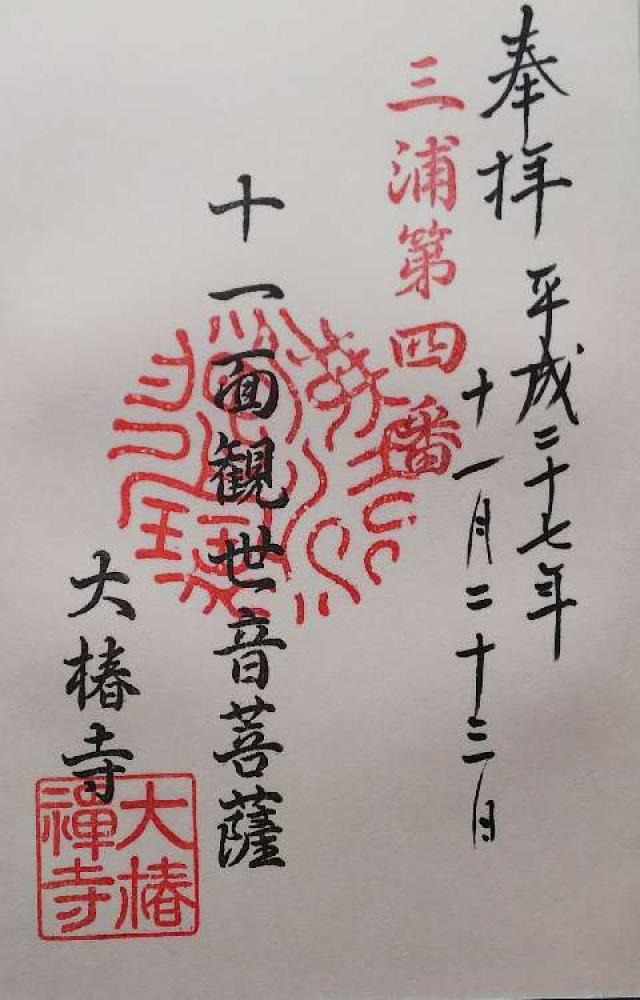 奉拝
平成二十七年
十一月二十三日
三浦第四番
十一面観世音菩薩
大椿寺
大椿
禅寺